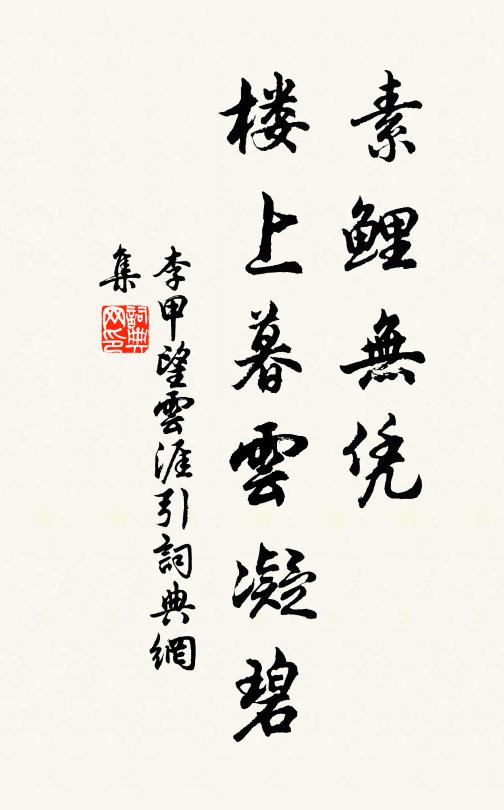 素鲤無凭
楼上暮雲凝碧
李甲望雲涯引詞典網
集
詞典
网印